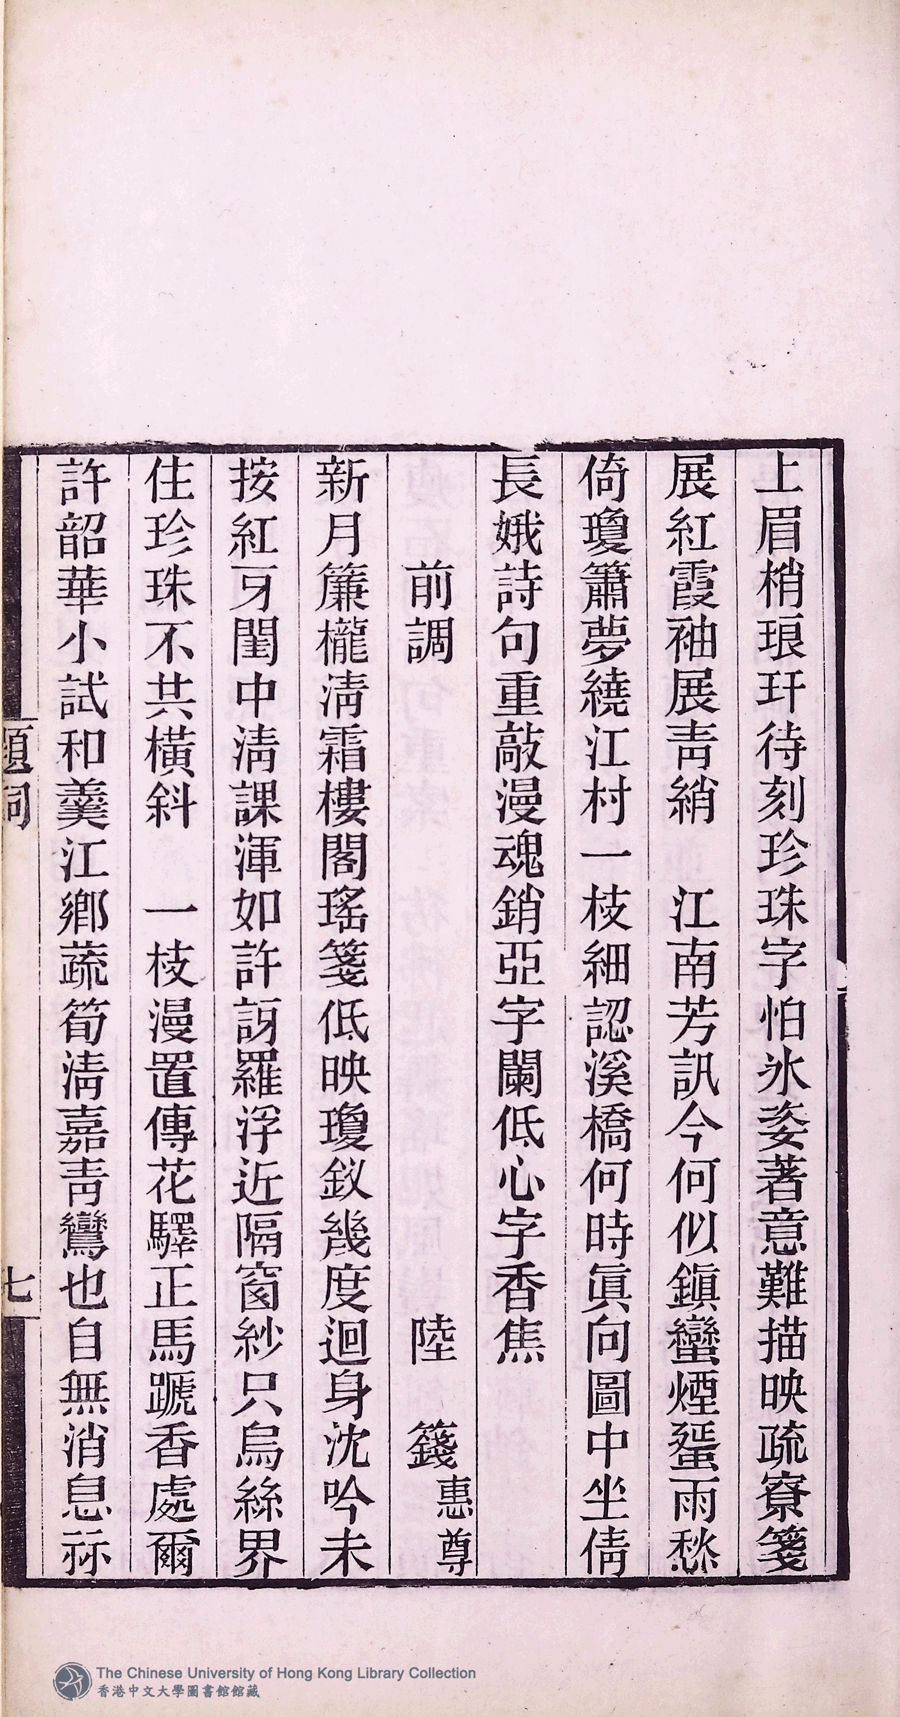 上眉梢琅玕待刻珍珠字怕氷姿著意難描映疏寮箋
展紅霞袖展青綃　江南芳訊今何似鎮蠻煙蜑雨愁
倚瓊簫夢繞江村一枝細認溪橋何時眞向圖中坐倩
長娥詩句重敲漫魂銷亞字闌低心字香焦
前調　陸籛惠尊
新月簾櫳淸霜樓閣瑤箋低映瓊釵幾度迴身沈吟未
按紅牙閨中淸課渾如許訝羅浮近隔窗紗只烏絲界
住珍珠不共橫斜　一枝漫置傳花驛正馬蹏香處爾
許韶華小試和羹江鄕蔬筍淸嘉靑鸞也自無消息祘
題詞
七
The Chinese University of Hong Kong Library Collection
香港中文大學圖書館館藏